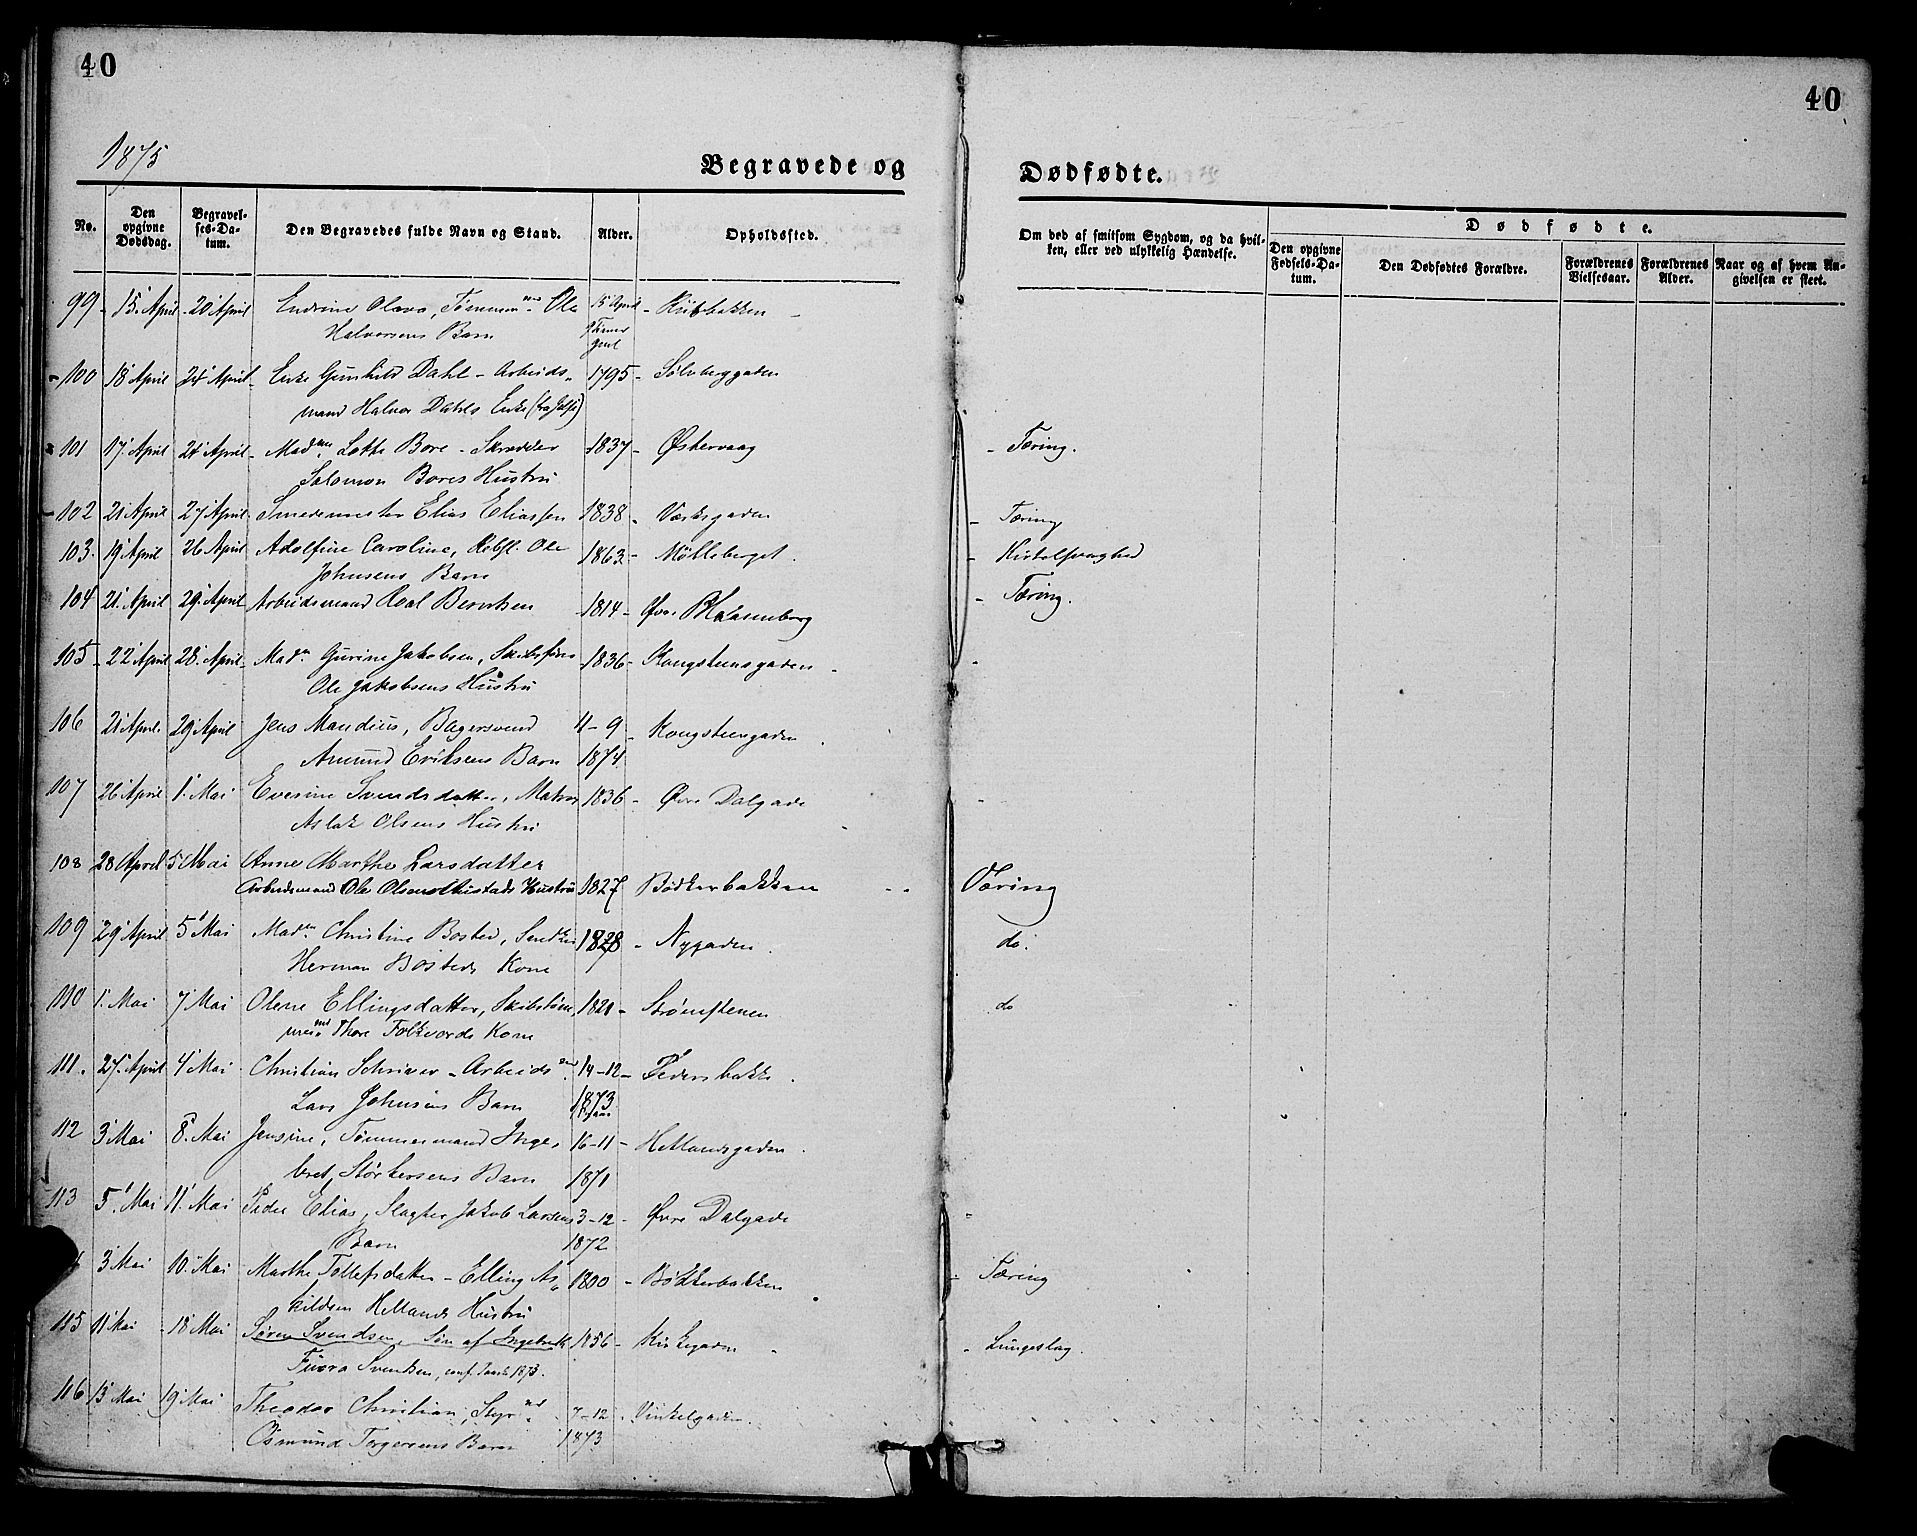 40
40
1875
Begravede og
Dødfødte.
No.
Den opgivne Dødsdag.
Begravelses-Datum.
Den Begravedes fulde Navn og Stand.
Alder.
Opholdssted.
Om død af smitsom Sygdom, og da hvilken, eller ved ulykkelig Hændelse.
Dødfødte.
Den opgivne Fødsels-Datum.
Den Dødfødtes Forældre.
Forældrenes Vielsesaar.
Forældrenes Alder.
Naar og af hvem Angivelsen er skeet.
99 - 15 April - 20 April Endrine Olava, Tømmermd Ole 15 April
Halvorsens Barn gml
100 18 April 24 April - Enke Gunhild Dahl - Arbeids- 1795 - Sølvberggaden
mand Halvor Dahls Enke
101 17 April 24 April - Madme Lotte Bore - Skrædder 1837 - Østervaag - Tæring.
Salomon Bores Hustru
102 21 April 27 April - Smedemester Elias Eliassen 1838 - Værksgaden - Tæring
103. 19 April 26 April Adolfine Caroline, Kobfl. Ole 1863 - Mölleberget. - Kirtelsvaghed
Johnsens Barn
104 21 April 29 April Arbeidsmand Roal Berntsen 1814 - Øvre Blaasenborg - Tæring.
105 - 22 April 28 April - Madm Gurine Jakobsen, Skibsfører 1836 - Kongsteensgaden -
Ole Jakobsens Hustru
106 21 April 29 April Jens Mandius, Bagersvend 4-9 - Kongsteengaden
Amund Eriksens Barn 1874
107 26 April 1 Mai Eversine Svendsdatter, Matros 1836 - Øvre Dalgade
Aslak Olsens Hustru
108 28 April 5 Mai Anne Marthe Larsdatter
Arbeidsmand Ole Olsen Austads Hustru 1827 Bødkerbakken Tæring
109 29 April 5 Mai Madm Christine Bosted, 1828 - Nygaden. do.
Herman Bosteds Kone
110 1. Mai 7 Mai Olene Ellingsdatter, Skibstøm- 1821 - Strømstenen do
mermd Thore Folkvords Kone
111. 27 April 4 Mai Christian Schriver - Arbeidsmd 14-12 - Pedersbakke.
Lars Johnsens Barn 1873
112 3 Mai 8. Mai Jensine, Tømmermand Inge- 16-11 - Hetlandsgaden.
bret Størkersens Barn 1871
113 5. Mai 11. Mai Peder Elias, Slagter Jakob Larsens 3-12 - Øvre Dalgade
Barn 1872
3 Mai 10. Mai Marthe Tollefsdatter - Elling As- 1800 - Bødkerbakken - Tæring
kildsen Hetlands Hustru
115 11 Mai - 18 Mai Søren Svendsen, Søn af Ingebreth 1856 - Kirkegaden - Lungeslag.
Svendsen, conf. 1873.
116 13 Mai 19 Mai Theodor Christian, Styrmd 7-12 - Vinkelgaden.
Osmund Torgersens Barn 1873